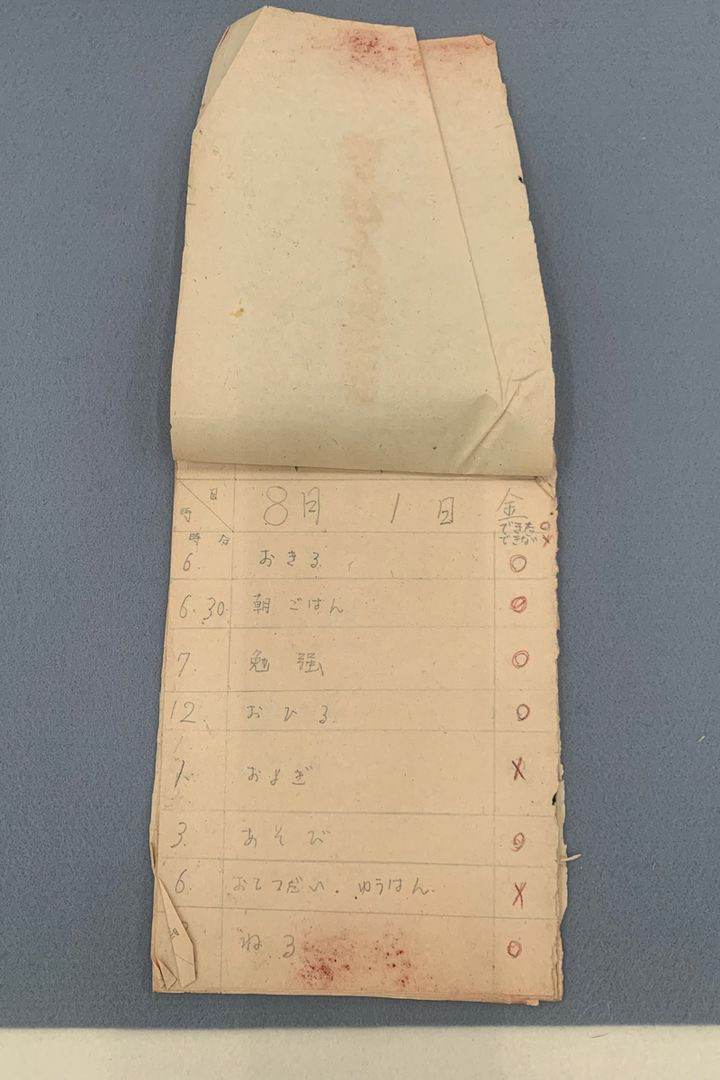 日 8月 1日 金
時 できた ○
時 分 できない ×
6. おきる ○
6.30. 朝ごはん ○
7 勉強 ○
12. おひる. ○
1. およぎ ×
3. あそび ○
6 おてつだい.ゆうはん. ×
ねる ○